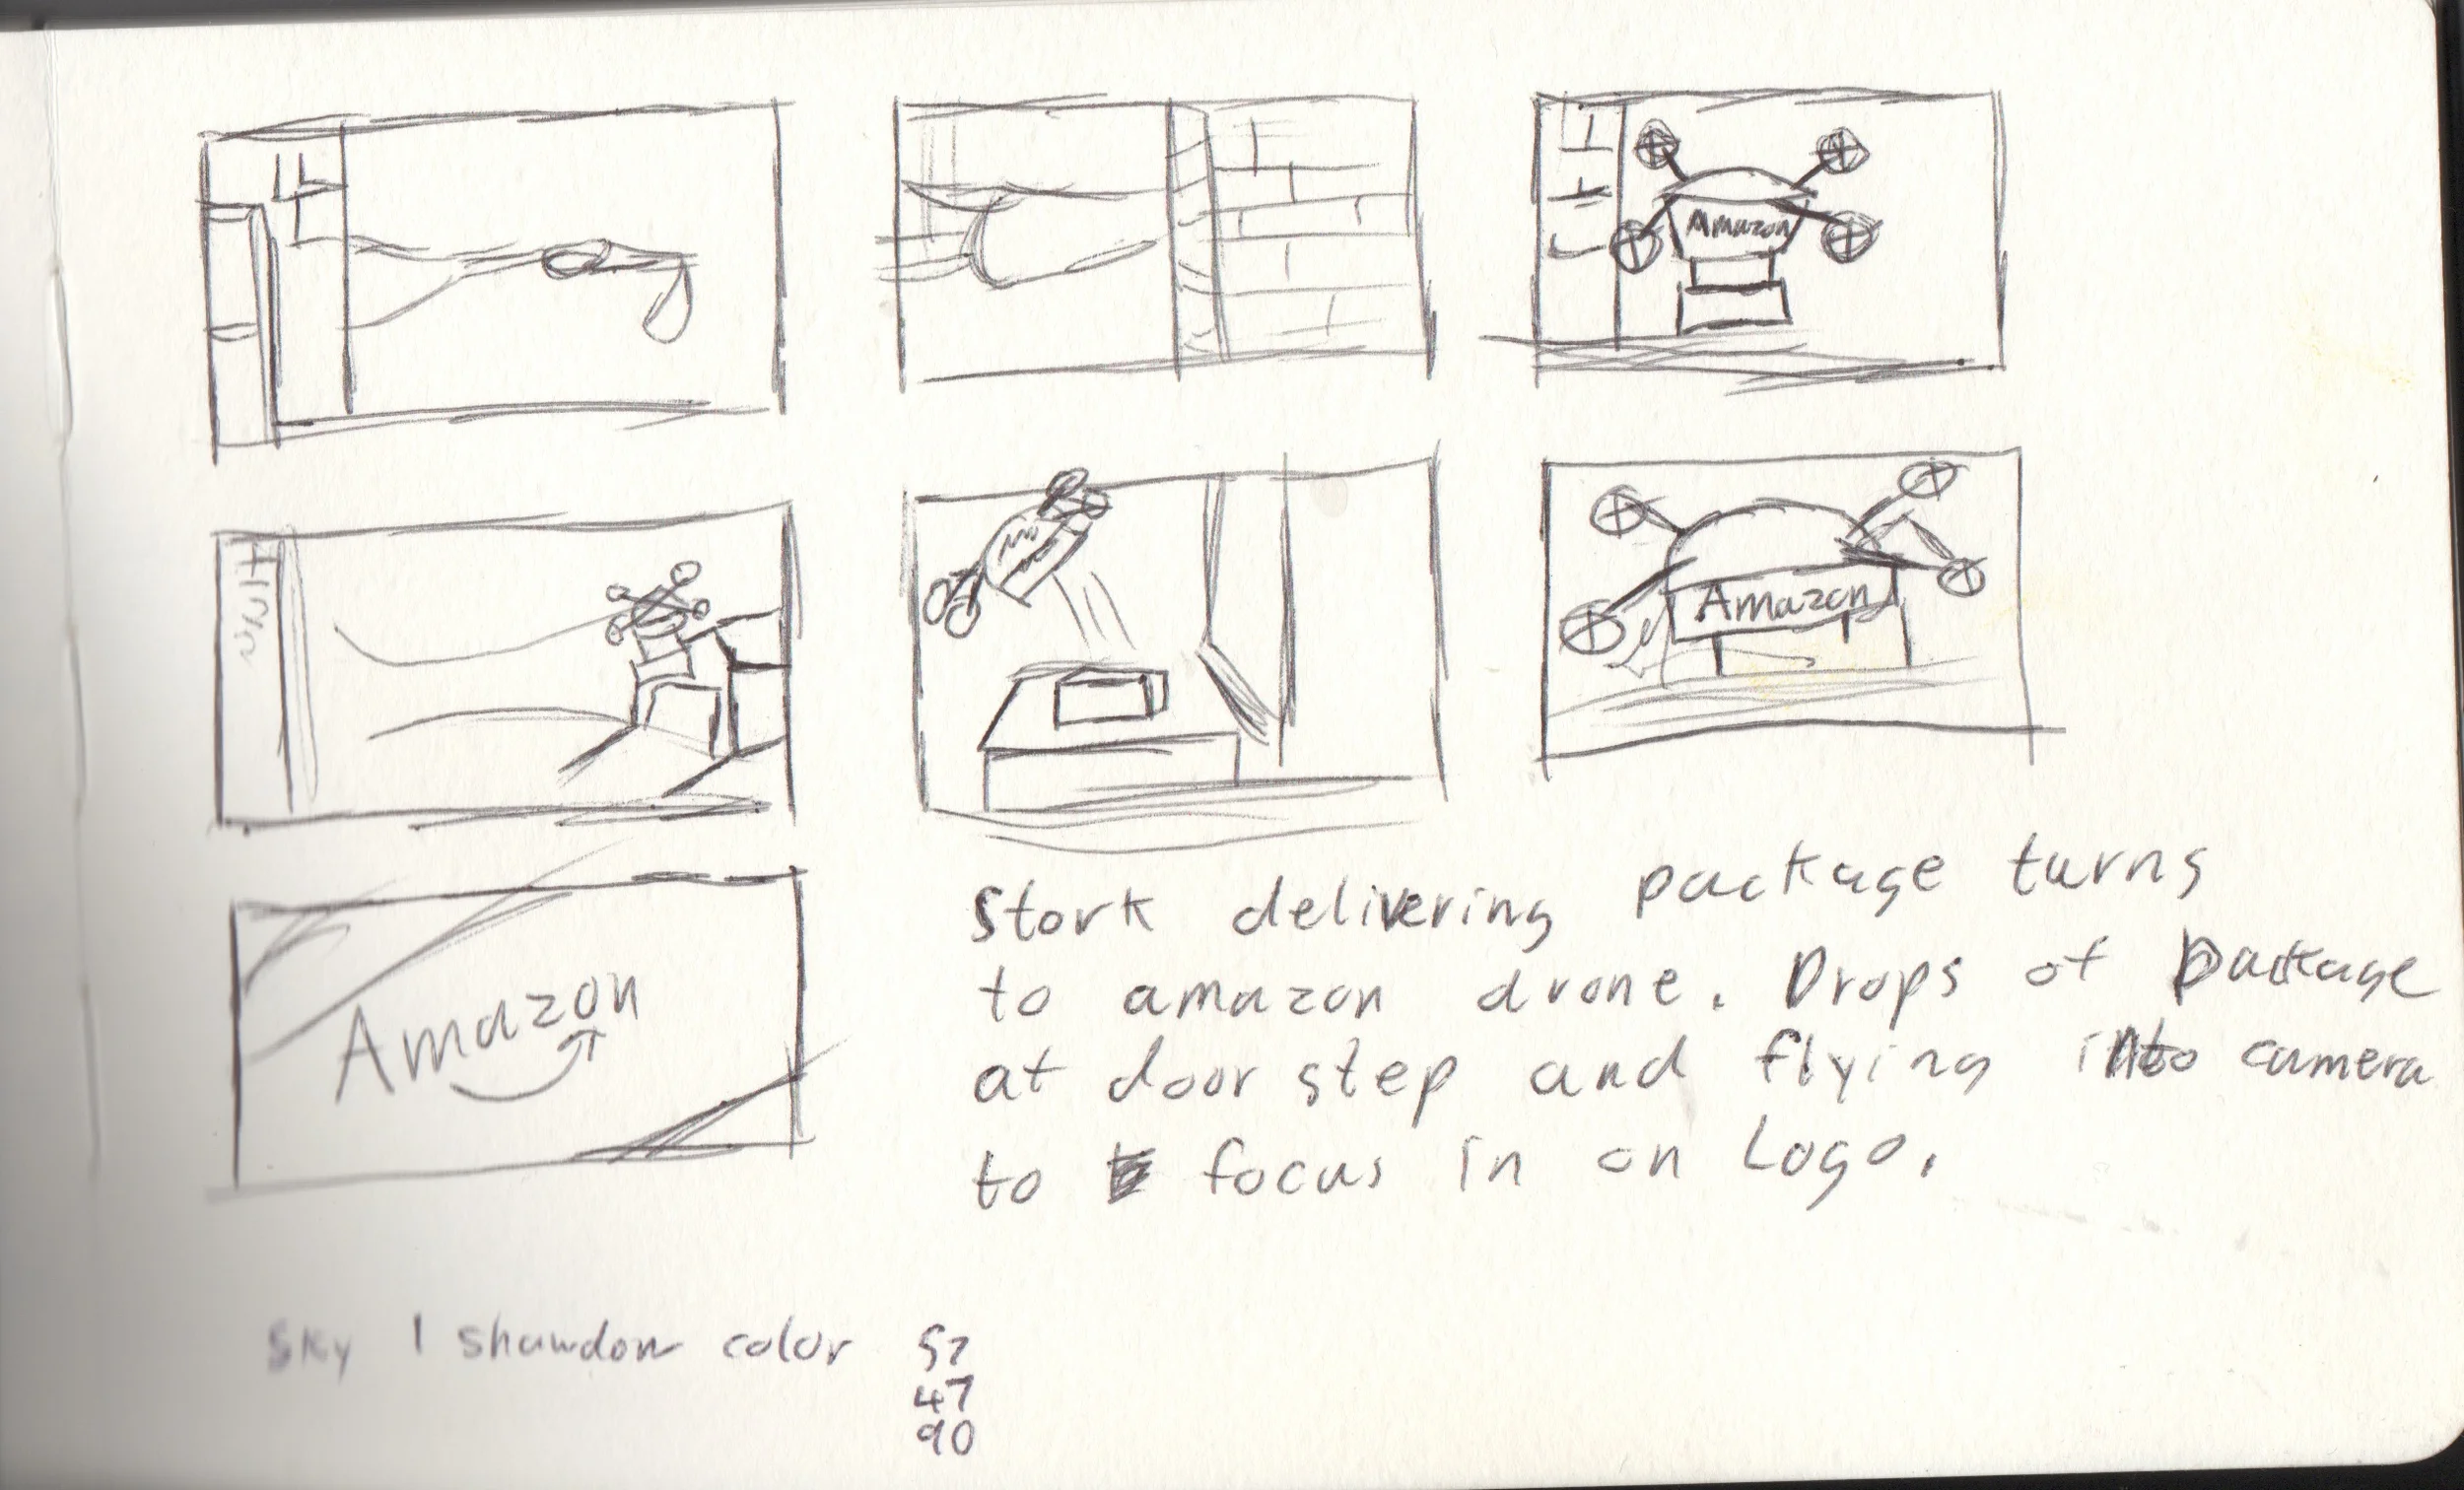 Amazon
Amazon
Amazon
Stork delivering package turns
to amazon drone. Drops of package
at door step and flying into camera
to focus in on Logo.
Sky / shawdow color
47
90